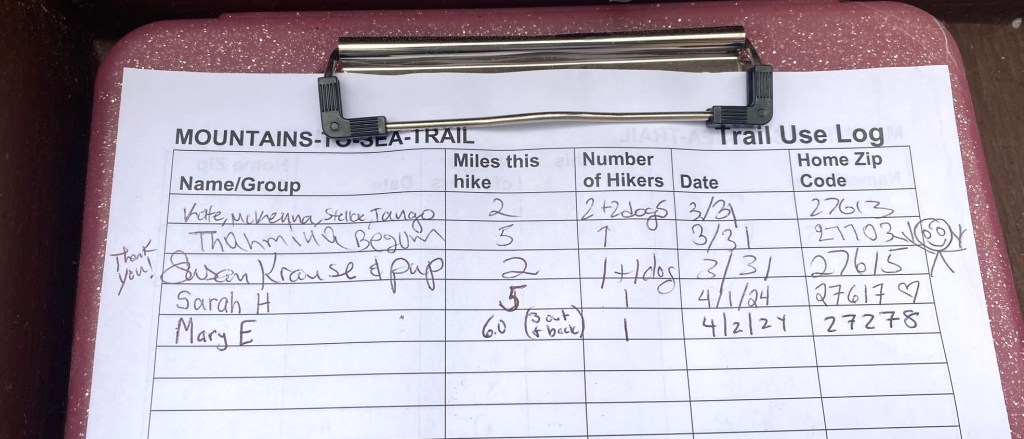 MOUNTAINS-TO-SEA-TRAIL Trail Use Log
Name/Group Miles this hike Number of Hikers Date Home Zip Code
Kate, McKenna, Stella, Tango 2 2+2dogs 3/31 27613
Thahmina Begum 5 1 3/31 27703
Thank you! Susan Krause & pup 2 1+1dog 3/31 27615
Sarah H 5 1 4/1/24 27617 ♡
Mary E 6.0 (3 out & back) 1 4/2/24 27278